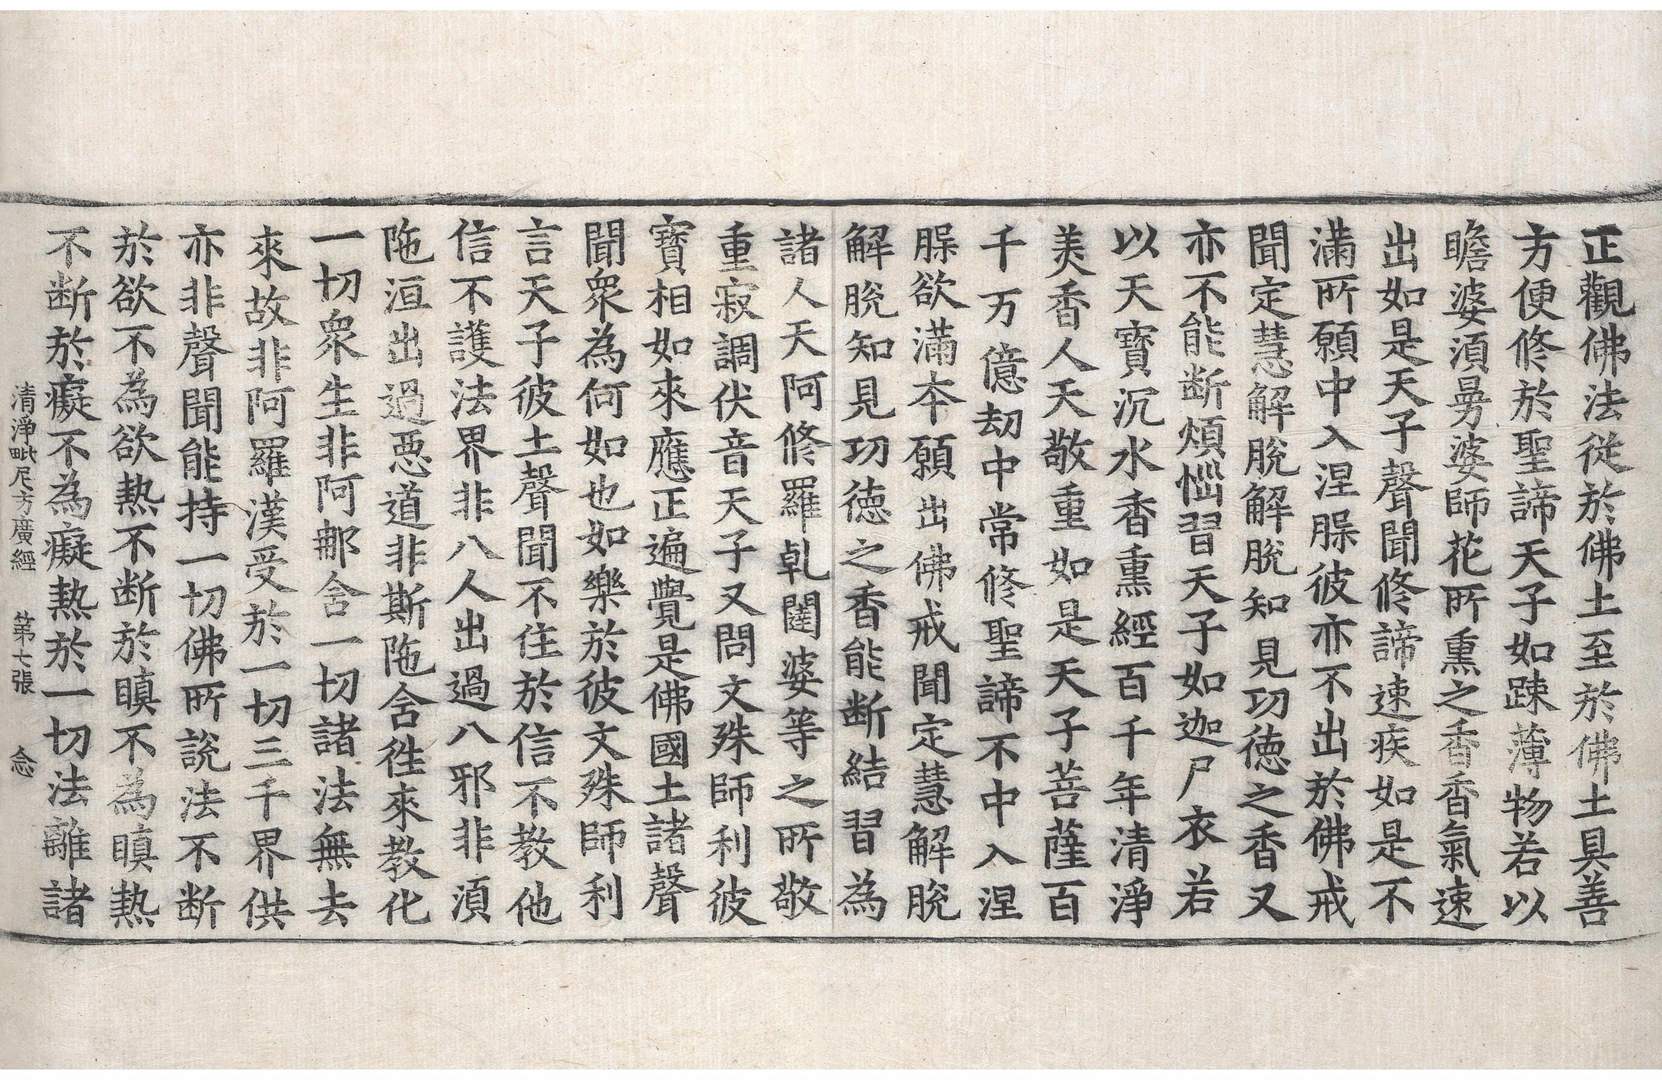 正觀佛法從於佛土至於佛土具善
方便修於聖諦天子如踈薄物若以
瞻婆湏曼婆師花所熏之香香氣速
出如是天子聲聞修諦速疾如是不
滿所願中入涅脵彼亦不出於佛戒
聞定慧解脫解脫知見功德之香又
亦不能断煩惱習天子如迦尸衣若
以天寶沉水香熏經百千年清淨
美香人天敬重如是天子菩薩百
千万億劫中常修聖諦不中入涅
脵欲滿本願出佛戒聞定慧解脫
解脫知見功德之香能断結習為
諸人天阿修羅乹闥婆等之所敬
重寂調伏音天子又問文殊師利彼
寶相如來應正遍覺是佛國土諸聲
聞衆為何如也如樂於彼文殊師利
言天子彼土聲聞不住於信不教他
信不護法界非八人出過八邪非湏
陁洹出過惡道非斯陁含徃來教化
一切衆生非阿那含一切諸法無去
來故非阿羅漢受於一切三千界供
亦非聲聞能持一切佛所說法不断
於欲不為欲熱不断於瞋不為瞋熱
不断於癡不為癡熱於一切法離諸
清淨毗尼方廣經 第七張 念